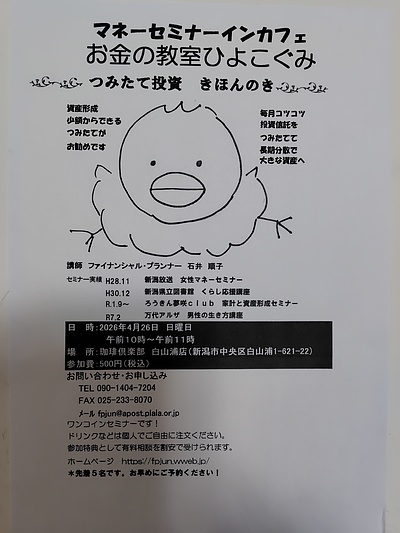 マネーセミナーインカフェ
お金の教室ひよこぐみ
つみたて投資 きほんのき
資産形成
少額からできる
つみたてが
お勧めです
毎月コツコツ
投資信託を
つみたてて
長期分散で
大きな資産へ
講師 ファイナンシャル・プランナー 石井 順子
セミナー実績 H28.11 新潟放送 女性マネーセミナー
H30.12 新潟県立図書館 くらし応援講座
R.1.9~ ろうきん夢咲club 家計と資産形成セミナー
R7.2 万代アルザ 男性の生き方講座
日 時:2026年4月26日 日曜日
午前10時~午前11時
場 所:珈琲倶楽部 白山浦店(新潟市中央区白山浦1-621-22)
参加費:500円(税込)
お問い合わせ・お申し込み
TEL 090-1404-7204
FAX 025-233-8070
メール fpjun@apost.plala.or.jp
ワンコインセミナーです!
ドリンクなどは個人でご自由に注文ください。
参加特典として有料相談を割安で受けられます。
ホームページ https://fpjun.wweb.jp/
*先着5名です。お早めにご予約ください!